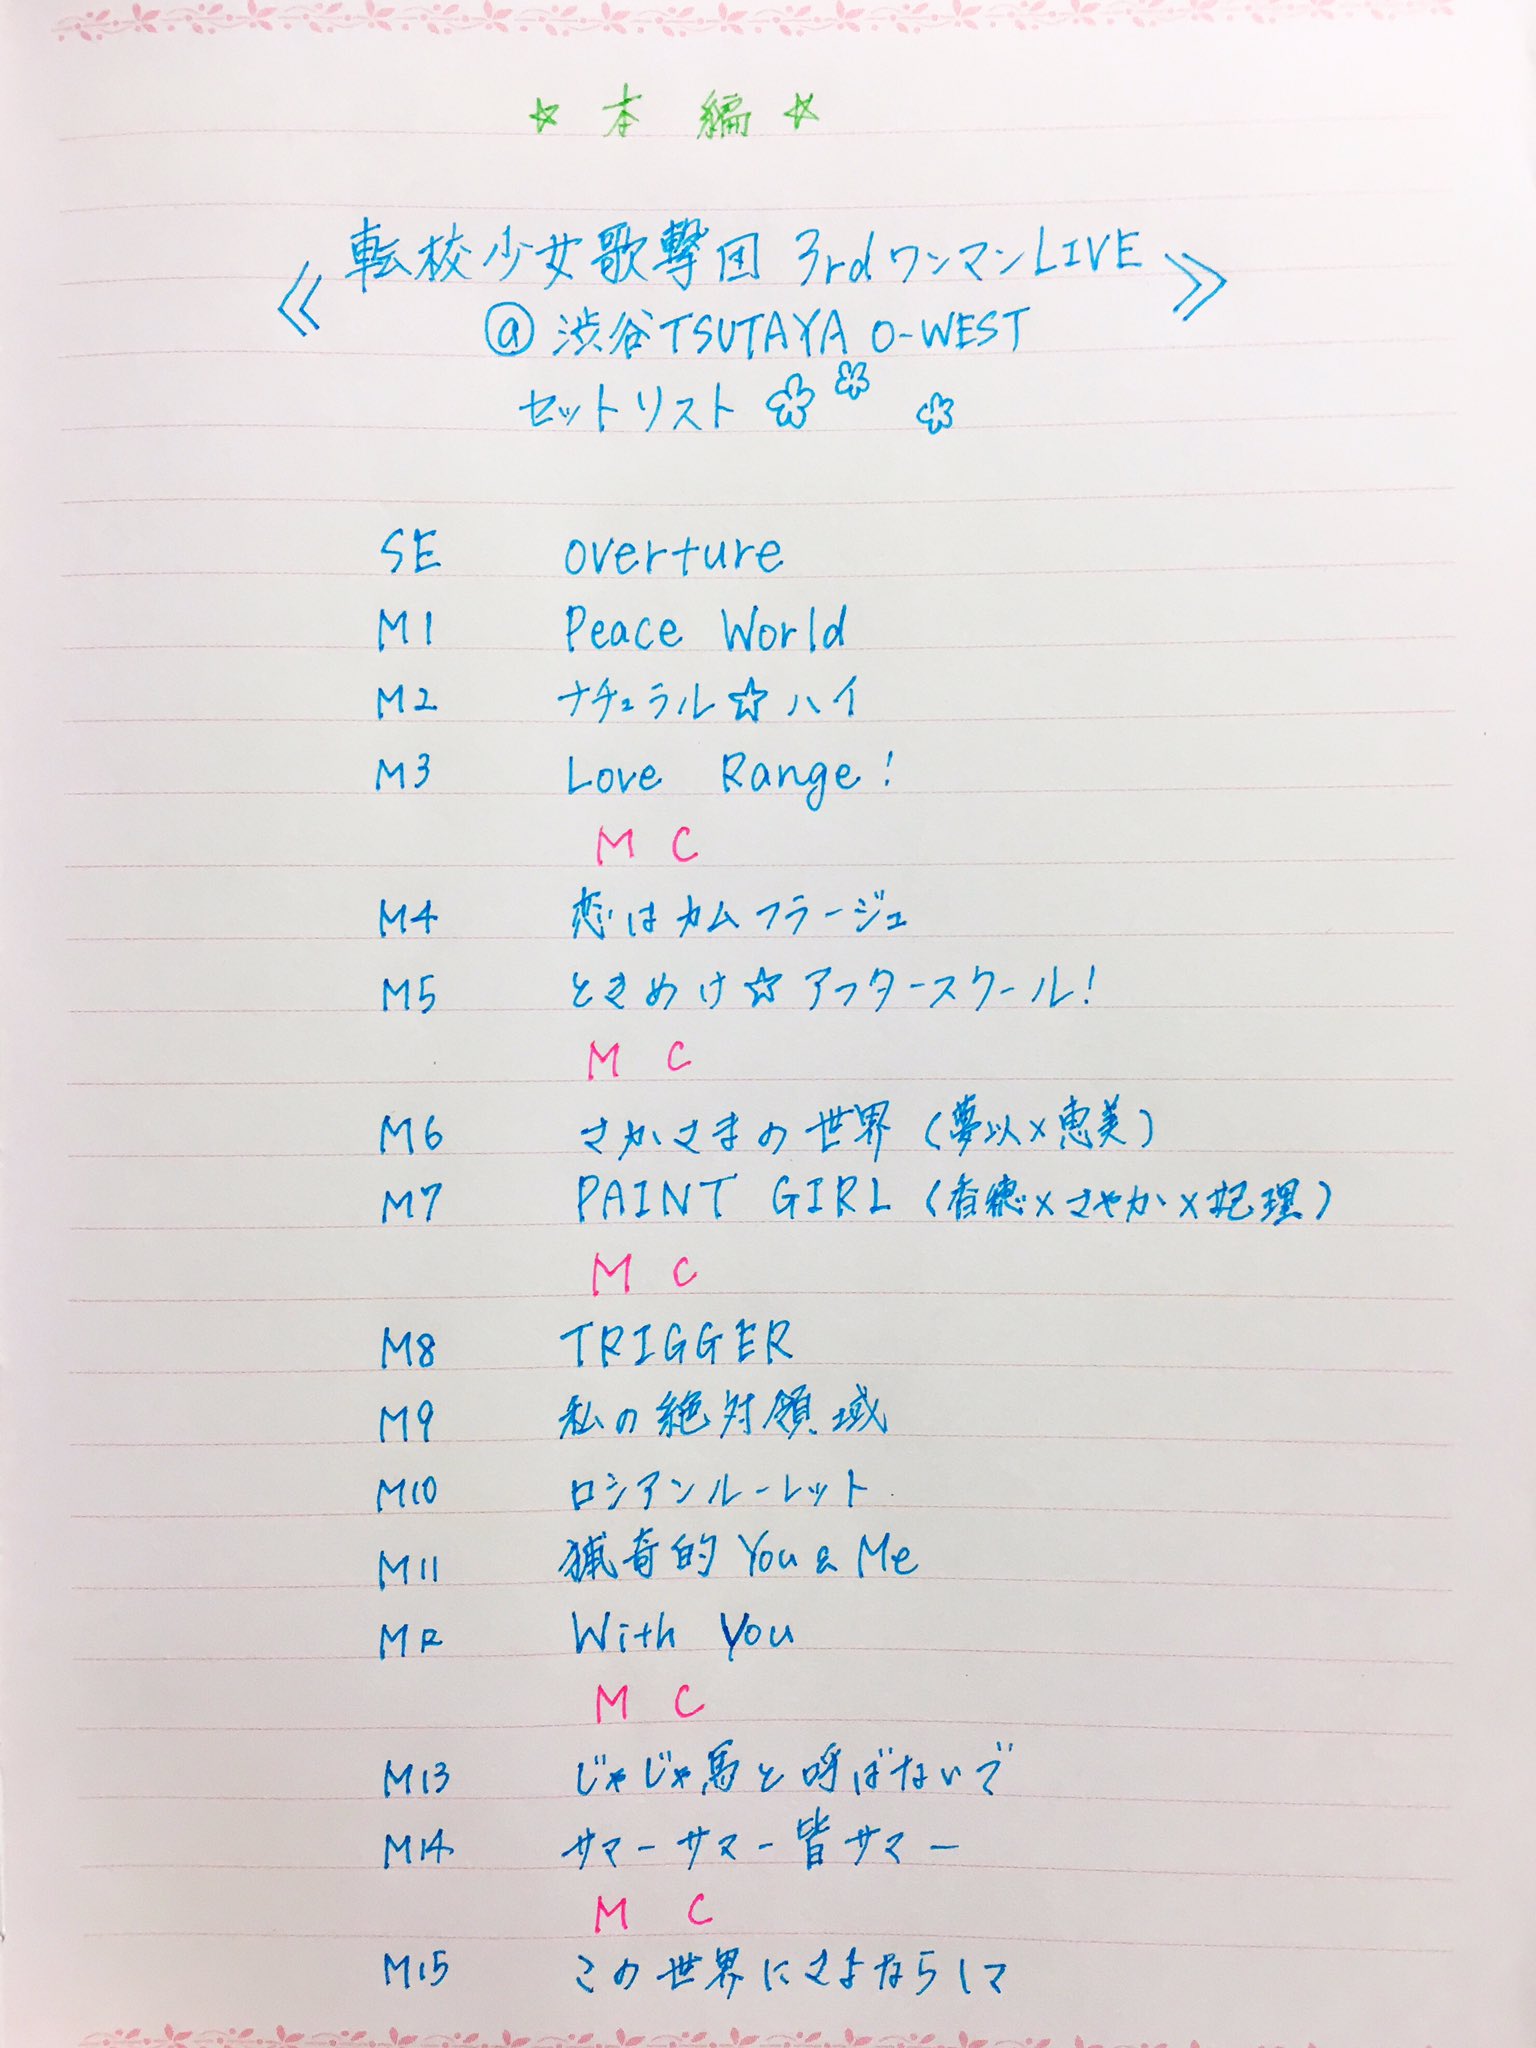 ☆ 本 編 ☆
《 転校少女歌撃団 3rdワンマンLIVE 》
@ 渋谷TSUTAYA O-WEST
セットリスト
SE overture
M1 Peace World
M2 ナチュラル☆ハイ
M3 Love Range!
MC
M4 恋はカムフラージュ
M5 ときめけ☆アフタースクール!
MC
M6 さかさまの世界 (夢以×恵美)
M7 PAINT GIRL (香穂×さやか×妃理)
MC
M8 TRIGGER
M9 私の絶対領域
M10 ロシアンルーレット
M11 猟奇的You & Me
M12 With You
MC
M13 じゃじゃ馬と呼ばないで
M14 サマーサマー皆サマー
MC
M15 この世界にさよならして